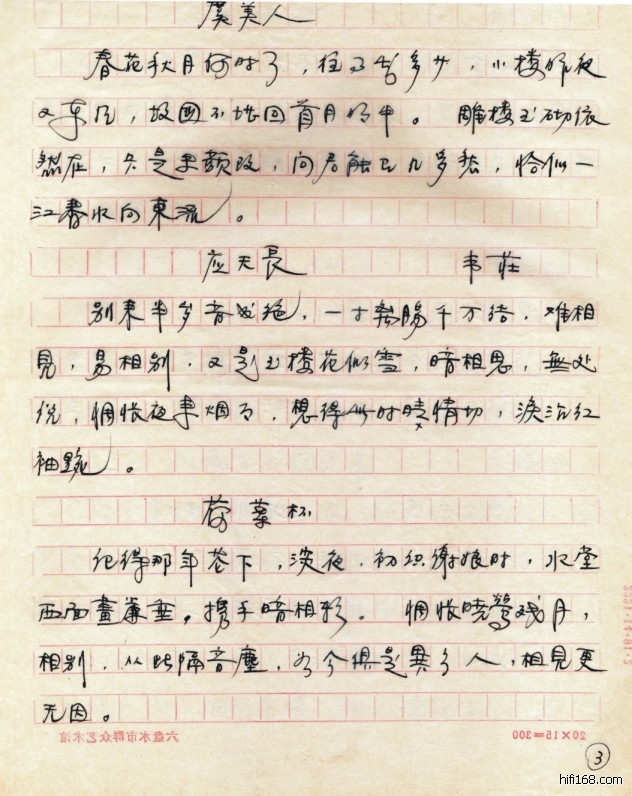 虞美人
春花秋月何时了，往事知多少，小楼昨夜
又东风，故國不堪回首月明中。 雕楼玉砌依
然在，只是朱颜改，问君能有几多愁，恰似一
江春水向東流。
应天長 韦莊
别来半岁音书绝，一寸離腸千万结，难相
見，易相别，又是玉楼花似雪，暗相思，無处
说，惆怅夜来烟月，想得此时情切，淚沾红
袖黦。
荷葉杯
记得那年花下，深夜，初识谢娘时，水堂
西面畫簾垂，携手暗相期。 惆怅晓鶯残月，
相别，从此隔音塵，如今俱是異乡人，相見更
无因。
六盘水市群众艺术馆 20×15=300
3
hifi168.com